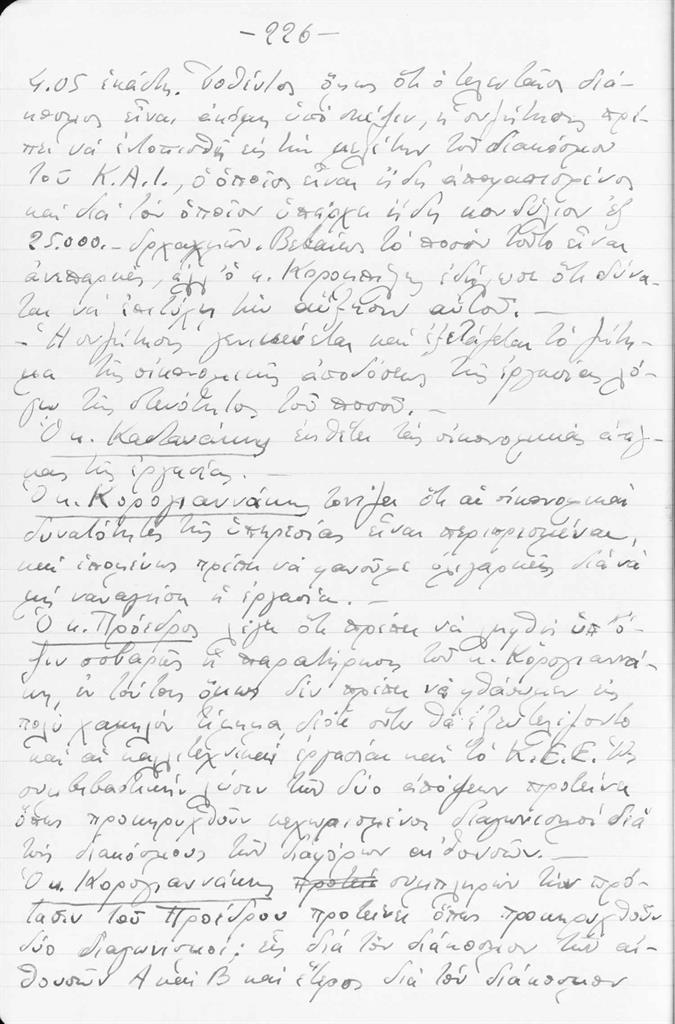 -226-
4.05 ἑκάστη. Τεθέντος ὅμως ὅτι ὁ τελευταῖος διά-
κοσμος εἶναι ἀκόμη ὑπό σκέψιν, ἡ συζήτησις πρέ-
πει νά ἐντοπισθῇ εἰς τήν μελέτην τοῦ διακόσμου
τοῦ Κ.Α.Ι., ὁ ὁποῖος εἶναι ἤδη ἀποφασισμένος
καί διά τόν ὁποῖον ὑπάρχει ἤδη κονδύλιον ἐξ
25.000.- δραχμῶν. Βεβαίως τό ποσόν τοῦτο εἶναι
ἀνεπαρκές, ἀλλ' ὁ κ. ἐδήλωσε ὅτι δύνα-
ται νά ἐπιτύχῃ τήν αὔξησιν αὐτοῦ. —
- Ἡ συζήτησις γενικεύεται καί ἐξετάζεται τό ζήτη-
μα τῆς οἰκονομικῆς ἀποδόσεως τῆς ἐργασίας λό-
γῳ τῆς στενότητος τοῦ ποσοῦ. —
Ὁ κ. Καστανάκης ἐκθέτει τάς οἰκονομικάς ἀνάγ-
κας τῆς ἐργασίας. —
Ὁ κ. Κορογιαννάκης τονίζει ὅτι αἱ οἰκονομικαί
δυνατότητες τῆς ὑπηρεσίας εἶναι περιωρισμέναι,
καί ἑπομένως πρέπει νά φανοῦμε ὀλιγαρκεῖς διά νά
μή ναυαγήσῃ ἡ ἐργασία. —
Ὁ κ. Πρόεδρος λέγει ὅτι πρέπει νά ληφθῇ ὑπ' ὄ-
ψιν σοβαρῶς ἡ παρατήρησις τοῦ κ. Κορογιαννά-
κη, ἐν τούτοις ὅμως δέν πρέπει νά φθάσωμεν εἰς
πολύ χαμηλόν τίμημα, διότι οὕτω θά ἐξευτελίζοντο
καί αἱ καλλιτεχνικαί ἐργασίαι καί τό Κ.Ε.Ε. Ὡς
συμβιβαστικήν λύσιν τῶν δύο ἀπόψεων προτείνει
ὅπως προκηρυχθοῦν κεχωρισμένοι διαγωνισμοί διά
τούς διακόσμους τῶν διαφόρων αἰθουσῶν. —
Ὁ κ. Κορογιαννάκης συμπληρῶν τήν πρό-
τασιν τοῦ Προέδρου προτείνει ὅπως προκηρυχθοῦν
δύο διαγωνισμοί: εἷς διά τόν διάκοσμον τῶν αἰ-
θουσῶν Α καί Β καί ἕτερος διά τόν διάκοσμον